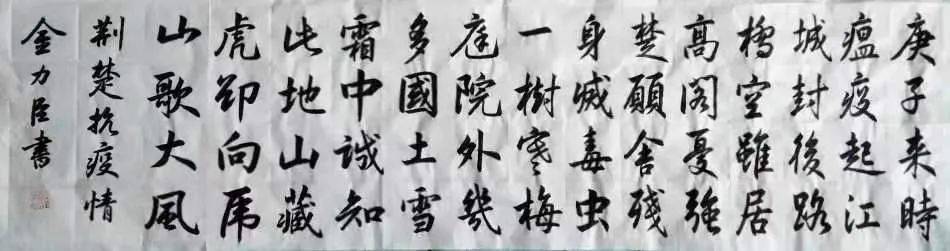 庚子来時
瘟疫起江
城封後路
橋空雖居
高閣憂強
楚願舍殘
身滅毒虫
一樹寒梅
庭院外幾
多國土雪
霜中誠知
此地山藏
虎卻向虎
山歌大風
荆楚抗疫情
金力臣書